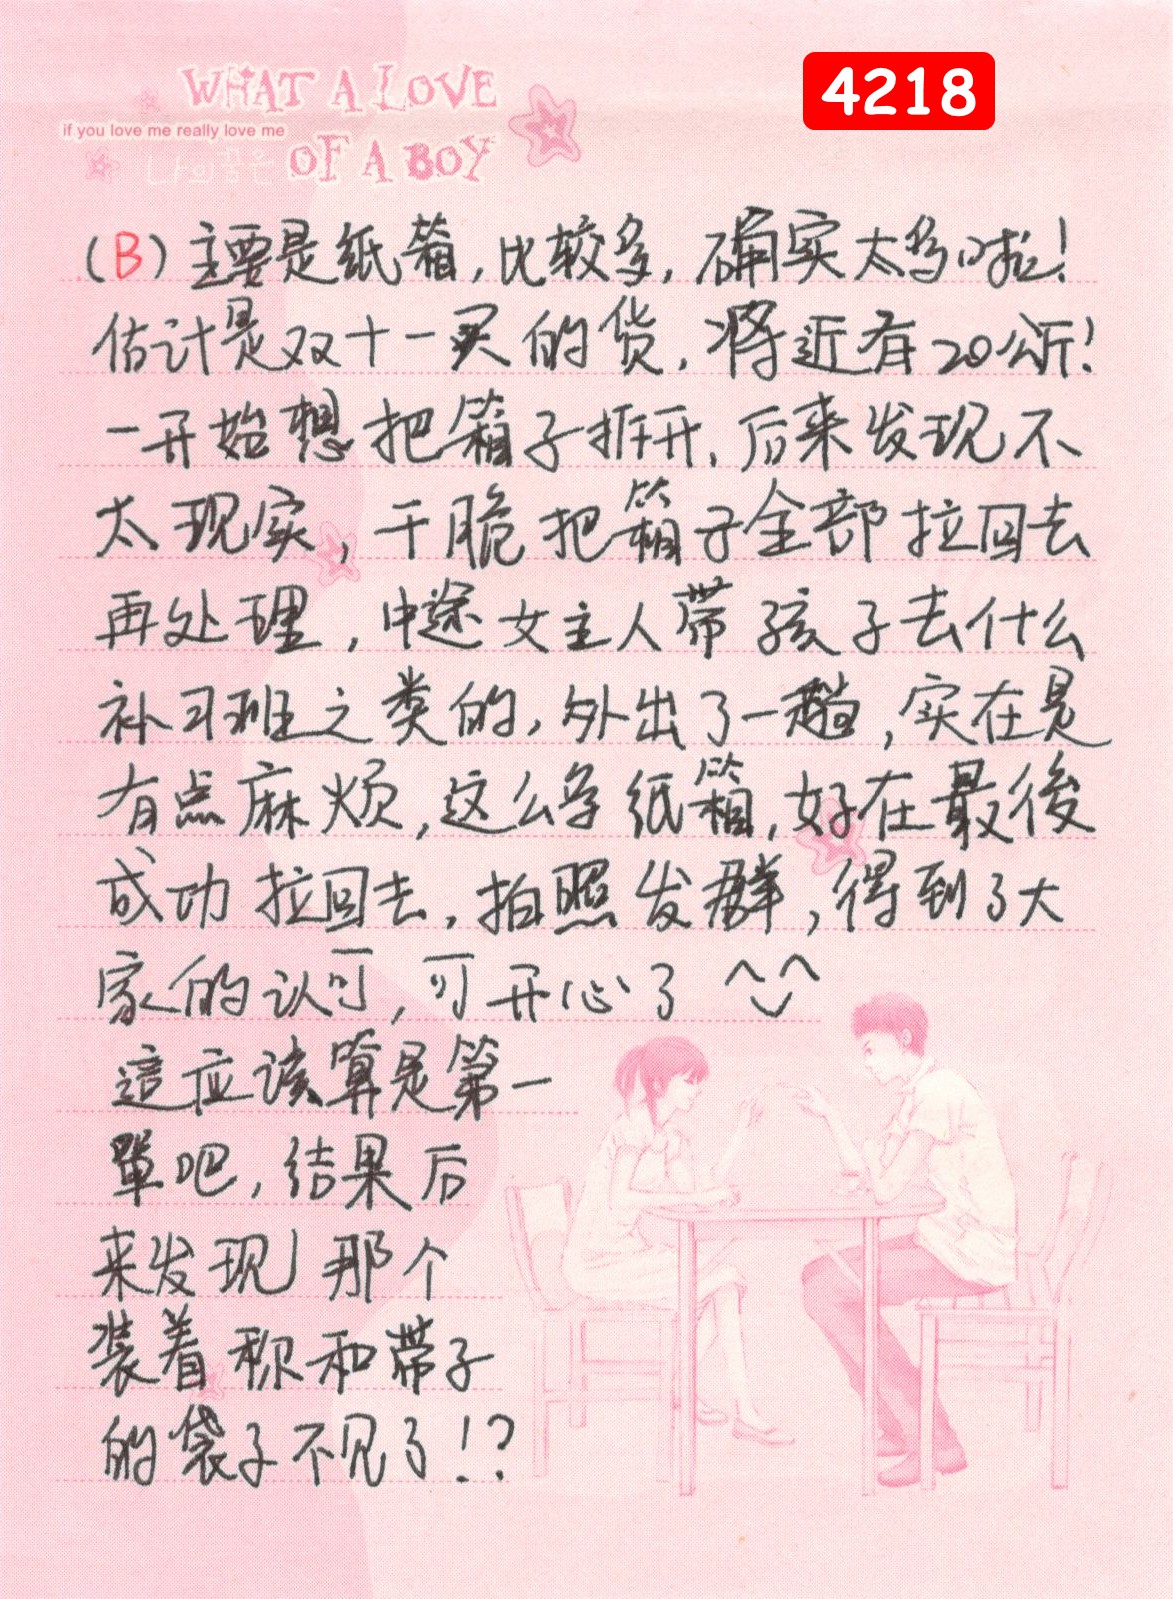 WHAT A LOVE
4218
if you love me really love me
나의꿈은 OF A BOY
(B)主要是纸箱,比较多,确实太多啦!
估计是双十一买的货,将近有20公斤!
一开始想把箱子拆开,后来发现不
太现实,干脆把箱子全部拉回去
再处理,中途女主人带孩子去什么
补习班之类的,外出了一趟,实在是
有点麻烦,这么多纸箱,好在最後
成功拉回去,拍照发群,得到了大
家的认可,可开心了^◡^
這应该算是第一
單吧,结果后
来发现那个
装着称和带子
的袋子不见了!?